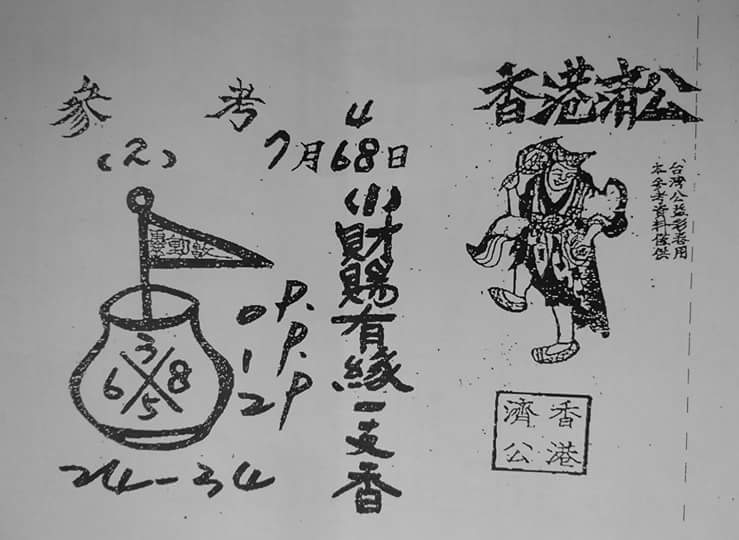 香港濟公
本參考資料僅供
台灣公益彩卷用
香港
濟公
參考
4
7月68日
(1)財賜有緣一支香
(2)
3
6 8
5
0P.
1P.
2P
24-34